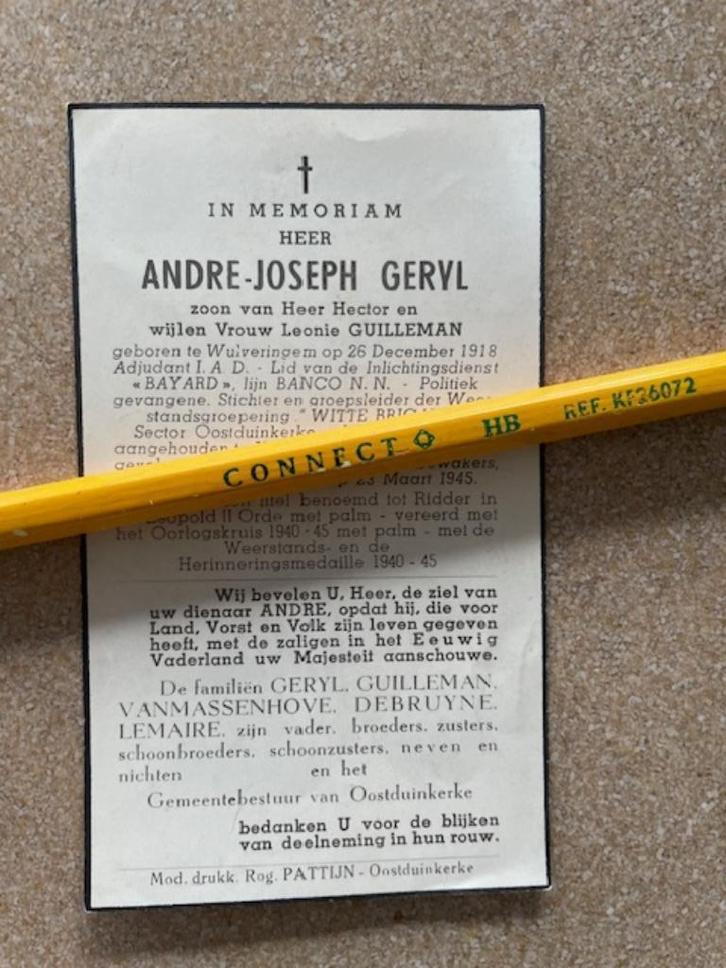 IN MEMORIAM
HEER
ANDRE-JOSEPH GERYL
zoon van Heer Hector en
wijlen Vrouw Leonie GUILLEMAN
geboren te Wulveringem op 26 December 1918
Adjudant I. A. D. - Lid van de Inlichtingsdienst
« BAYARD », lijn BANCO N. N. - Politiek
gevangene. Stichter en groepsleider der
standsgroepering " WITTE
Sector Oostduinkerke
aangehouden
23 Maart 1945.
titel benoemd tot Ridder in
Leopold II Orde met palm - vereerd met
het Oorlogskruis 1940 - 45 met palm - met de
Weerstands- en de
Herinneringsmedaille 1940 - 45
Wij bevelen U, Heer, de ziel van
uw dienaar ANDRE, opdat hij, die voor
Land, Vorst en Volk zijn leven gegeven
heeft, met de zaligen in het Eeuwig
Vaderland uw Majesteit aanschouwe.
De familiën GERYL, GUILLEMAN,
VANMASSENHOVE, DEBRUYNE,
LEMAIRE, zijn vader, broeders, zusters,
schoonbroeders, schoonzusters, neven en
nichten en het
Gemeentebestuur van Oostduinkerke
bedanken U voor de blijken
van deelneming in hun rouw.
Mod. drukk. Rog. PATTIJN - Oostduinkerke
CONNECT HB REF. KF26072